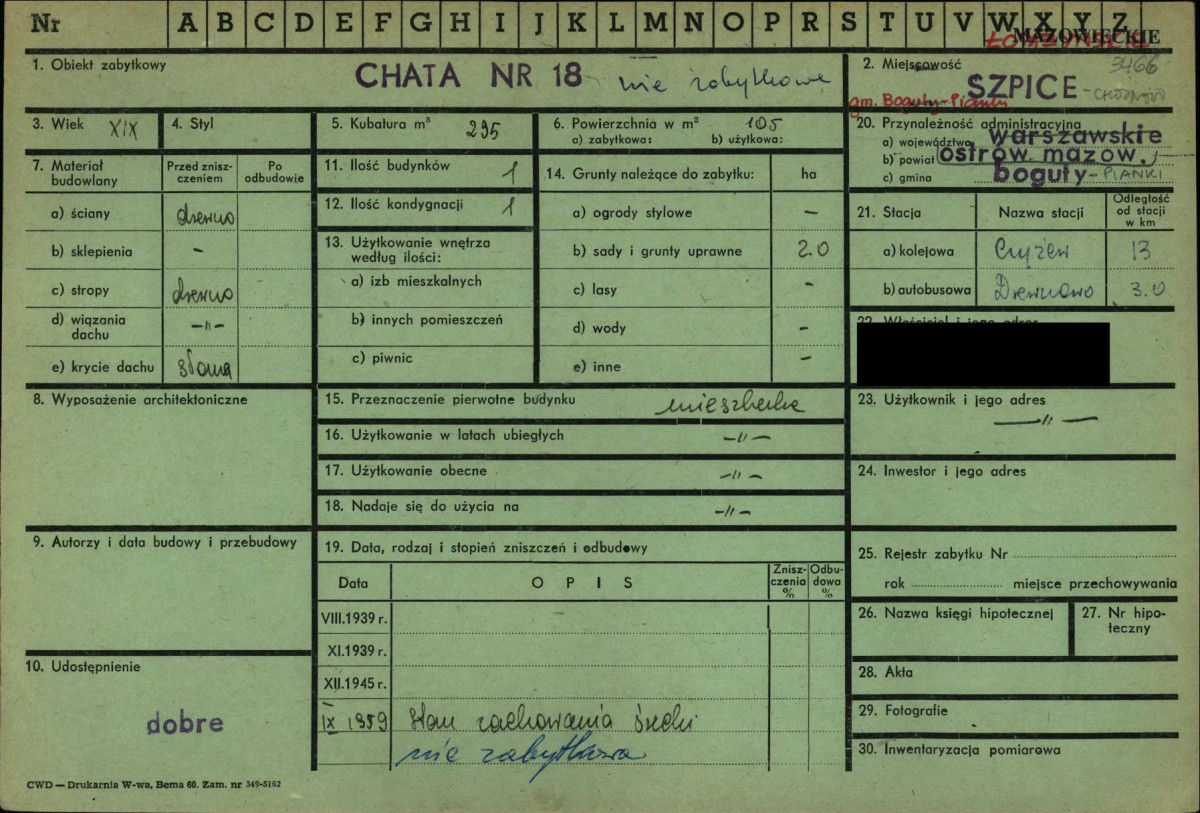 Nr A B C D E F G H I J K L M N O P R S T U V W X Y Z
MAZOWIECKIE
3466
1. Obiekt zabytkowy
CHATA NR 18 nie zabytkowe
2. Miejscowość
SZPICE - CHOJNOWO
gm. Boguty-Pianki
3. Wiek XIX
4. Styl
5. Kubatura m³ 295
6. Powierzchnia w m² 105
a) zabytkowa: b) użytkowa:
20. Przynależność administracyjna
a) województwo warszawskie
b) powiat ostrów. mazow.
c) gmina boguty-PIANKI
7. Materiał budowlany
Przed zniszczeniem
Po odbudowie
a) ściany drewno
b) sklepienia -
c) stropy drewno
d) wiązania dachu -"-
e) krycie dachu słoma
11. Ilość budynków 1
12. Ilość kondygnacji 1
13. Użytkowanie wnętrza według ilości:
a) izb mieszkalnych
b) innych pomieszczeń
c) piwnic
14. Grunty należące do zabytku: ha
a) ogrody stylowe -
b) sady i grunty uprawne 2.0
c) lasy -
d) wody -
e) inne -
21. Stacja
Nazwa stacji
Odległość od stacji w km
a) kolejowa Czyżew 13
b) autobusowa Drewnowo 3.0
22. Właściciel i jego adres
8. Wyposażenie architektoniczne
15. Przeznaczenie pierwotne budynku mieszkalne
16. Użytkowanie w latach ubiegłych -"-
17. Użytkowanie obecne -"-
18. Nadaje się do użycia na -"-
23. Użytkownik i jego adres
-"-
24. Inwestor i jego adres
9. Autorzy i data budowy i przebudowy
19. Data, rodzaj i stopień zniszczeń i odbudowy
Data OPIS Zniszczenia % Odbudowa %
VIII.1939 r.
XI.1939 r.
XII.1945 r.
IX 1959 Stan zachowania średni
nie zabytkowa
25. Rejestr zabytku Nr
rok miejsce przechowywania
26. Nazwa księgi hipotecznej
27. Nr hipoteczny
28. Akta
29. Fotografie
30. Inwentaryzacja pomiarowa
10. Udostępnienie
dobre
CWD — Drukarnia W-wa, Bema 60. Zam. nr 349-5162